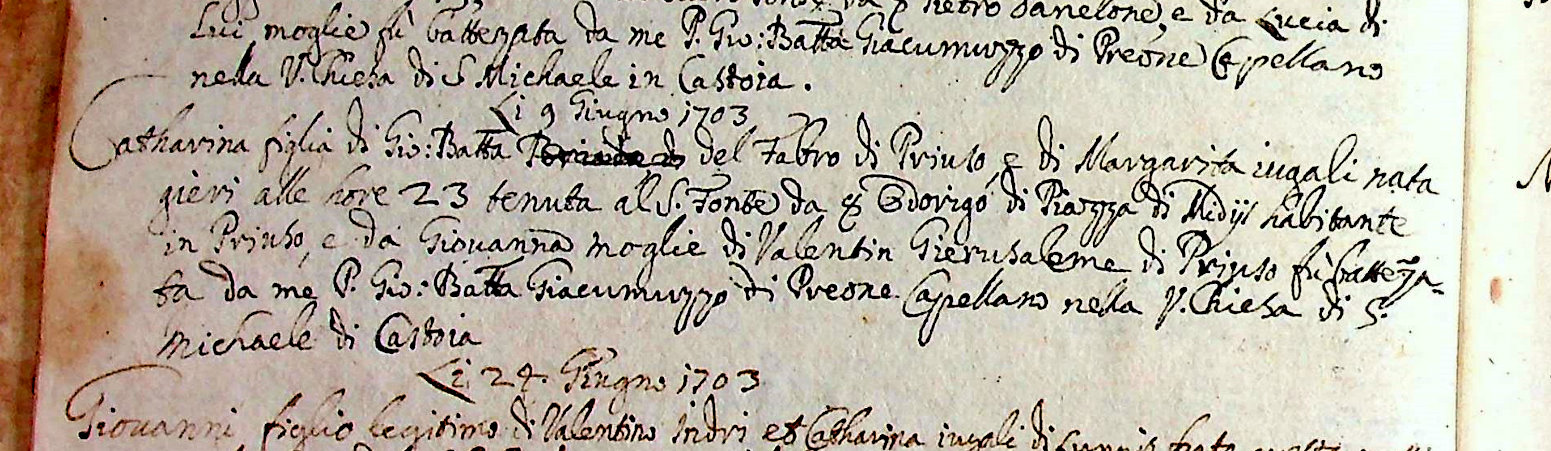 Pietro Danelone, e da Lucia di
Lui moglie fù battezzata da me P. Gio: Batta Giacumuzzo di Preone Capellano
nella V. Chiesa di S Michaele in Castoia.
Li 9 Giugno 1703
Catharina figlia di Gio: Batta del Fabro di Priuso, e di Margarita iugali nata
gieri alle hore 23 tenuta al S. Fonte da Odorigo di Piazza di Midijs habitante
in Priuso, e da Giouanna moglie di Valentin Gierusaleme di Priuso fù battezza-
ta da me P. Gio: Batta Giacumuzzo di Preone Capellano nella V. Chiesa di S.
Michaele di Castoia
Li 24. Giugno 1703
Giouanni figlio legitimo di Valentino Indri et Catharina iugali di